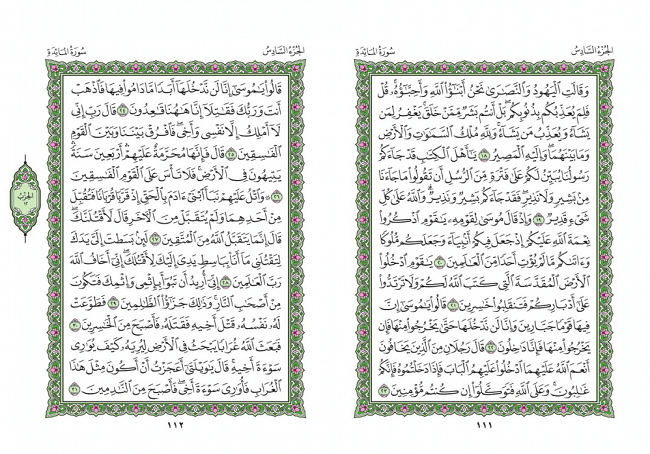 الجزء السادس
سورة المائدة
وَقَالَتِ ٱلْيَهُودُ وَٱلنَّصَٰرَىٰ نَحْنُ أَبْنَٰٓؤُا۟ ٱللَّهِ وَأَحِبَّٰٓؤُهُۥ ۚ قُلْ
فَلِمَ يُعَذِّبُكُم بِذُنُوبِكُم ۖ بَلْ أَنتُم بَشَرٌ مِّمَّنْ خَلَقَ ۚ يَغْفِرُ لِمَن
يَشَآءُ وَيُعَذِّبُ مَن يَشَآءُ ۚ وَلِلَّهِ مُلْكُ ٱلسَّمَٰوَٰتِ وَٱلْأَرْضِ
وَمَا بَيْنَهُمَا ۖ وَإِلَيْهِ ٱلْمَصِيرُ ١٨ يَٰٓأَهْلَ ٱلْكِتَٰبِ قَدْ جَآءَكُمْ
رَسُولُنَا يُبَيِّنُ لَكُمْ عَلَىٰ فَتْرَةٍ مِّنَ ٱلرُّسُلِ أَن تَقُولُوا۟ مَا جَآءَنَا
مِنۢ بَشِيرٍ وَلَا نَذِيرٍ ۖ فَقَدْ جَآءَكُم بَشِيرٌ وَنَذِيرٌ ۗ وَٱللَّهُ عَلَىٰ كُلِّ
شَىْءٍ قَدِيرٌ ١٩ وَإِذْ قَالَ مُوسَىٰ لِقَوْمِهِۦ يَٰقَوْمِ ٱذْكُرُوا۟
نِعْمَةَ ٱللَّهِ عَلَيْكُمْ إِذْ جَعَلَ فِيكُمْ أَنۢبِيَآءَ وَجَعَلَكُم مُّلُوكًا
وَءَاتَىٰكُم مَّا لَمْ يُؤْتِ أَحَدًا مِّنَ ٱلْعَٰلَمِينَ ٢٠ يَٰقَوْمِ ٱدْخُلُوا۟
ٱلْأَرْضَ ٱلْمُقَدَّسَةَ ٱلَّتِى كَتَبَ ٱللَّهُ لَكُمْ وَلَا تَرْتَدُّوا۟
عَلَىٰٓ أَدْبَارِكُمْ فَتَنقَلِبُوا۟ خَٰسِرِينَ ٢١ قَالُوا۟ يَٰمُوسَىٰٓ إِنَّ
فِيهَا قَوْمًا جَبَّارِينَ وَإِنَّا لَن نَّدْخُلَهَا حَتَّىٰ يَخْرُجُوا۟ مِنْهَا فَإِن
يَخْرُجُوا۟ مِنْهَا فَإِنَّا دَٰخِلُونَ ٢٢ قَالَ رَجُلَانِ مِنَ ٱلَّذِينَ يَخَافُونَ
أَنْعَمَ ٱللَّهُ عَلَيْهِمَا ٱدْخُلُوا۟ عَلَيْهِمُ ٱلْبَابَ فَإِذَا دَخَلْتُمُوهُ فَإِنَّكُمْ
غَٰلِبُونَ ۚ وَعَلَى ٱللَّهِ فَتَوَكَّلُوٓا۟ إِن كُنتُم مُّؤْمِنِينَ ٢٣
١١١
الجزء السادس
سورة المائدة
قَالُوا۟ يَٰمُوسَىٰٓ إِنَّا لَن نَّدْخُلَهَآ أَبَدًا مَّا دَامُوا۟ فِيهَا ۖ فَٱذْهَبْ
أَنتَ وَرَبُّكَ فَقَٰتِلَآ إِنَّا هَٰهُنَا قَٰعِدُونَ ٢٤ قَالَ رَبِّ إِنِّى
لَآ أَمْلِكُ إِلَّا نَفْسِى وَأَخِى ۖ فَٱفْرُقْ بَيْنَنَا وَبَيْنَ ٱلْقَوْمِ
ٱلْفَٰسِقِينَ ٢٥ قَالَ فَإِنَّهَا مُحَرَّمَةٌ عَلَيْهِمْ ۛ أَرْبَعِينَ سَنَةً ۛ
يَتِيهُونَ فِى ٱلْأَرْضِ ۚ فَلَا تَأْسَ عَلَى ٱلْقَوْمِ ٱلْفَٰسِقِينَ
٢٦ وَٱتْلُ عَلَيْهِمْ نَبَأَ ٱبْنَىْ ءَادَمَ بِٱلْحَقِّ إِذْ قَرَّبَا قُرْبَانًا فَتُقُبِّلَ
مِنْ أَحَدِهِمَا وَلَمْ يُتَقَبَّلْ مِنَ ٱلْءَاخَرِ قَالَ لَأَقْتُلَنَّكَ ۖ
قَالَ إِنَّمَا يَتَقَبَّلُ ٱللَّهُ مِنَ ٱلْمُتَّقِينَ ٢٧ لَئِنۢ بَسَطتَ إِلَىَّ يَدَكَ
لِتَقْتُلَنِى مَآ أَنَا۠ بِبَاسِطٍ يَدِىَ إِلَيْكَ لِأَقْتُلَكَ ۖ إِنِّىٓ أَخَافُ ٱللَّهَ
رَبَّ ٱلْعَٰلَمِينَ ٢٨ إِنِّىٓ أُرِيدُ أَن تَبُوٓأَ بِإِثْمِى وَإِثْمِكَ فَتَكُونَ
مِنْ أَصْحَٰبِ ٱلنَّارِ ۚ وَذَٰلِكَ جَزَٰٓؤُا۟ ٱلظَّٰلِمِينَ ٢٩ فَطَوَّعَتْ
لَهُۥ نَفْسُهُۥ قَتْلَ أَخِيهِ فَقَتَلَهُۥ فَأَصْبَحَ مِنَ ٱلْخَٰسِرِينَ ٣٠
فَبَعَثَ ٱللَّهُ غُرَابًا يَبْحَثُ فِى ٱلْأَرْضِ لِيُرِيَهُۥ كَيْفَ يُوَٰرِى
سَوْءَةَ أَخِيهِ ۚ قَالَ يَٰوَيْلَتَىٰٓ أَعَجَزْتُ أَنْ أَكُونَ مِثْلَ هَٰذَا
ٱلْغُرَابِ فَأُوَٰرِىَ سَوْءَةَ أَخِى ۖ فَأَصْبَحَ مِنَ ٱلنَّٰدِمِينَ ٣١
١١٢
الحزب
١٢